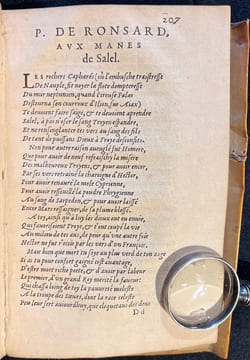 207
P. DE RONSARD,
AVX MANES
de Salel.
LEs rochers Capharés (où l'embusche traistresse
De Nauple, fit noyer la flote dompteresse
Du mur neptunien, quand l'ireuse Palas
Destourna son courroux d'Ilion, sur Aiax)
Te deuoient faire sage, & te deuoient aprendre
Salel, à n'esueiller là bas Troye en sa cendre,
Et ne renseigner tes vers au sang des fils
De tant de puissans Dieux à Troye desconfis.
Non pour autre raison aueugle fut Homere,
Que pour auoir de neuf refraischy la misere
Des malheureux Troyens, & pour auoir encor,
Par ses vers retraîné la charongne d'Hector,
Pour auoir renauré la mole Cyprienne,
Pour auoir resouillé la poudre Phrygienne
Au sang de Sarpedon, & pour auoir laissé
Encor Mars resaigner, de sa plume blessé.
A toy, ainsi qu'à luy les dieux ont eu enuie,
Qui fauorisent Troye, & t'ont coupé la vie
Au milieu de tes ans, de peur qu'vne autre fois
Hector ne fut r'ocis par les vers d'vn François.
Mais bien que mort tu sois au plus verd de ton age
Si as tu pour confort gaigné cest auantage,
D'estre mort riche poete, & d'auoir par labeur
Le premier, d'vn grand Roy merité la faueur:
Qui chassa loing de toy la pauureté moleste
A la troupe des Sœurs, dont la race celeste
Peu leur sert auiourdhuy, que cliquetans des dens
D d